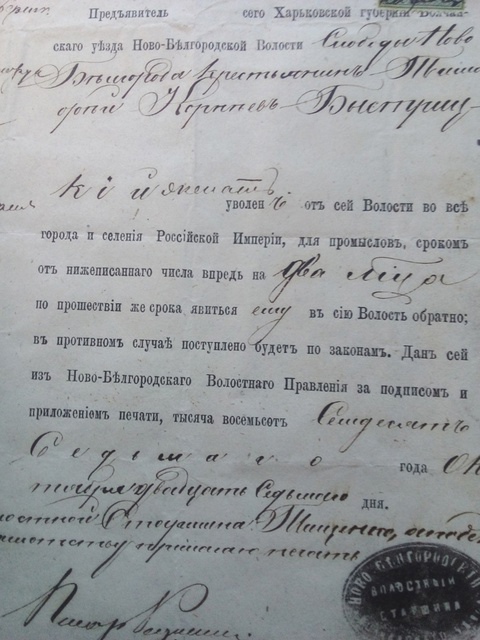 Предъявитель сего Харьковской губерніи
скаго уѣзда Ново-Бѣлгородской Волости Слободы Ново
крестьянинъ
Корнѣевъ Быстриц-
кій женатъ
уволенъ отъ сей Волости во всѣ
города и селенія Россійской Имперіи, для промысловъ, срокомъ
отъ нижеписаннаго числа впредь на два мѣца
по прошествіи же срока явиться ему въ сію Волость обратно;
въ противномъ случаѣ поступлено будетъ по законамъ. Данъ сей
изъ Ново-Бѣлгородскаго Волостнаго Правленія за подписомъ и
приложеніемъ печати, тысяча восемьсотъ Семдесятъ
Седьмаго года Ок
тября двадцать Седьмаго дня.
Старшина
печать
НОВО-БѢЛГОРОДСКІЙ
ВОЛОСТНЫЙ
СТАРШИНА